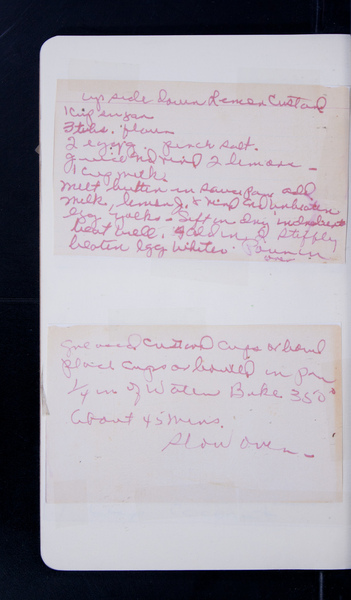 up side down Lemon Custard
1 cup sugar
3 tbls. flour
2 eggs pinch salt.
Juice and rind 2 lemons -
1 cup milk
Melt butter in saucepan add
milk, lemon J. & rind and unbeaten
egg yolks. Sift in dry indredients
beat well. Fold in 2 stiffly
beaten egg whites. Pour in
over
greased custard cups or bowl
place cups or bowl in pan
1/4 in of water Bake 350°
about 45 mins.
Slow oven -